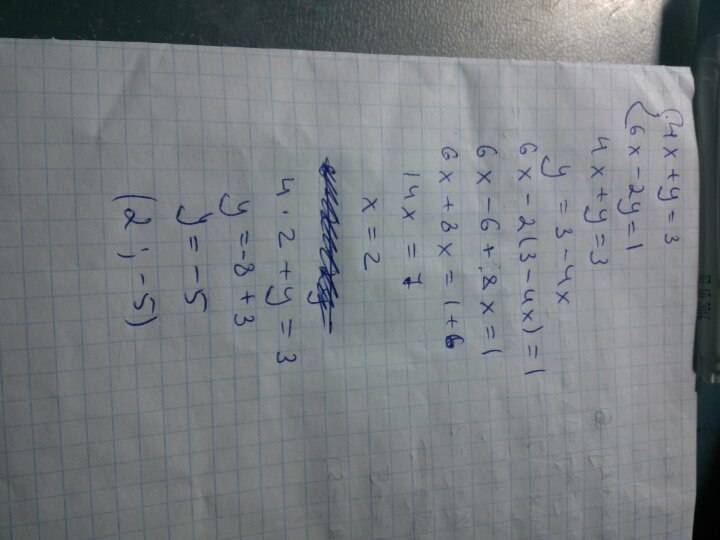 {4x+y=3
6x-2y=1
4x+y=3
y=3-4x
6x-2(3-4x)=1
6x-6+8x=1
6x+8x=1+6
14x=7
x=2
4·2+y=3
y=-8+3
y=-5
(2;-5)